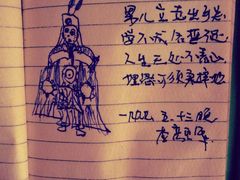 男儿立志出乡关
学不成名誓不还
人生无处不青山
埋骨何须桑梓地
五.十三晚